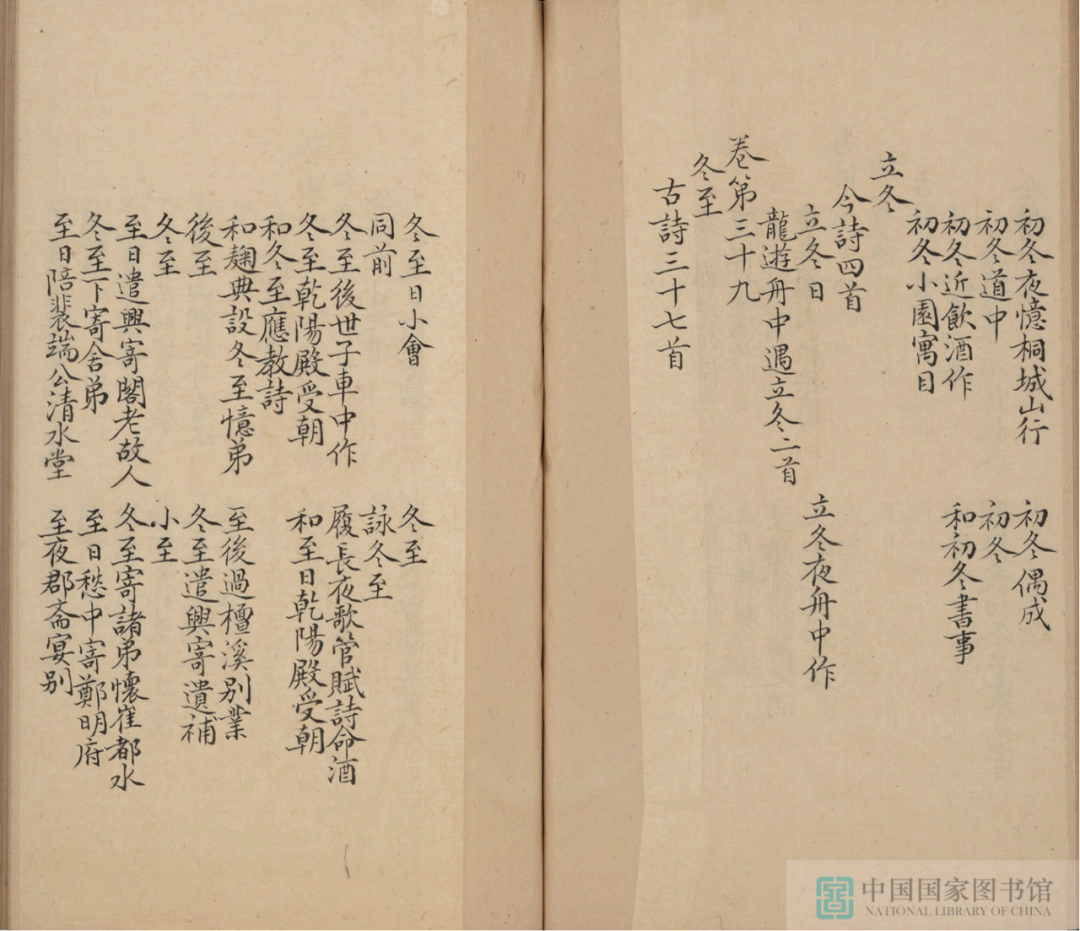 初冬夜憶桐城山行 初冬偶成
初冬道中 初冬
初冬近飲酒作 和初冬書事
初冬小園寓目
立冬
今詩四首
立冬日 立冬夜舟中作
龍遊舟中遇立冬二首
卷第三十九
冬至
古詩三十七首
冬至日小會 冬至
同前 詠冬至
冬至後世子車中作 履長夜歌管賦詩命酒
冬至乾陽殿受朝 和至日乾陽殿受朝
和冬至應教詩
和麹典設冬至憶弟 至後過檀溪別業
後至 冬至遣興寄遺補
冬至 小至
至日遣興寄閣老故人 冬至寄諸弟懷崔都水
冬至下寄舍弟 至日愁中寄鄭明府
至日陪裴端公清水堂 至夜郡斎宴別
中国国家图书馆
NATIONAL LIBRARY OF CHINA